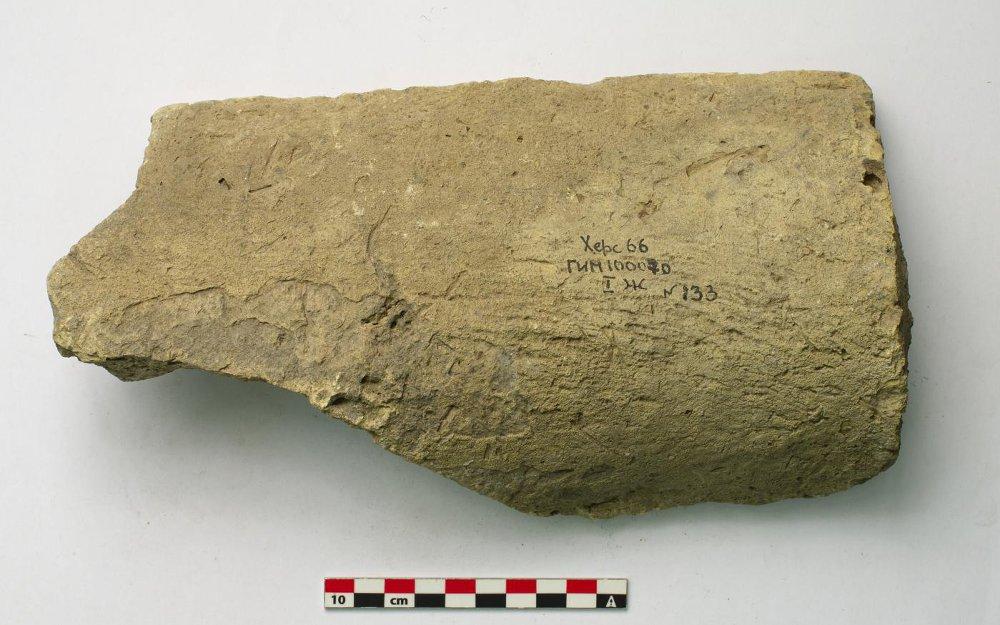 Херс 66
ГИМ 100070
I Ж № 133
10 cm A